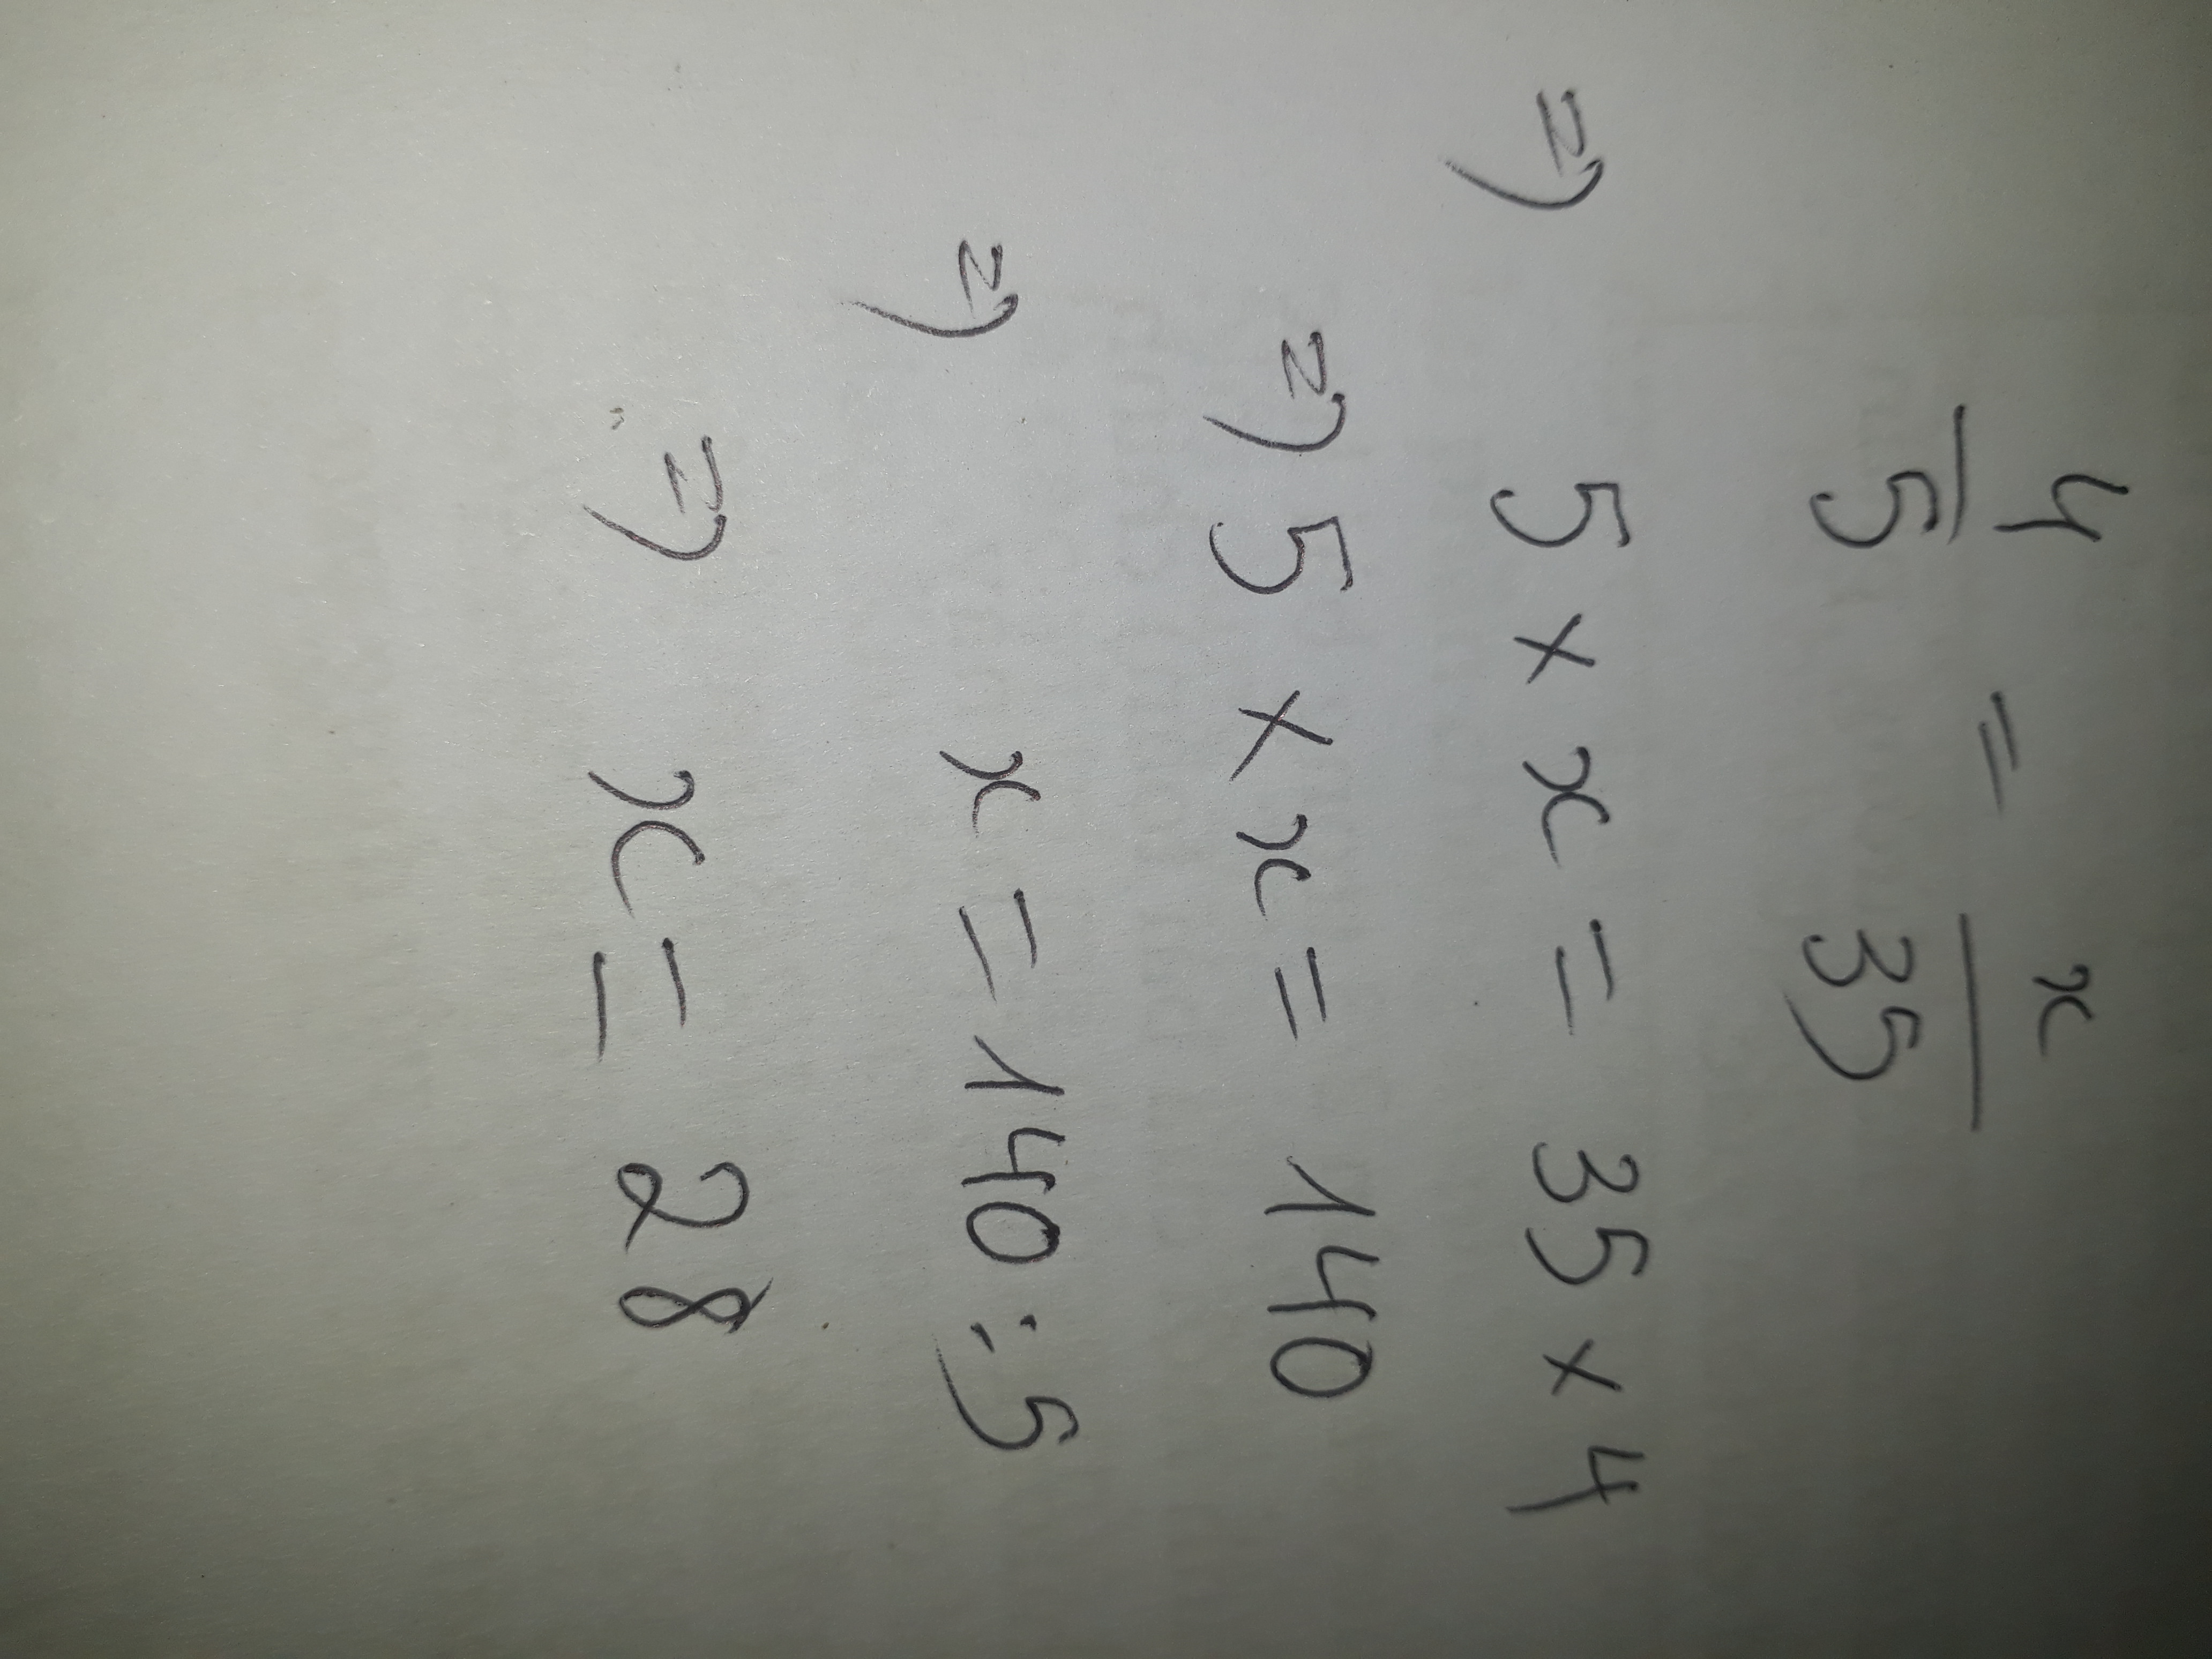 4/5 = x/35
=> 5 × x = 35 × 4
=> 5 × x = 140
=> x = 140 : 5
=> x = 28